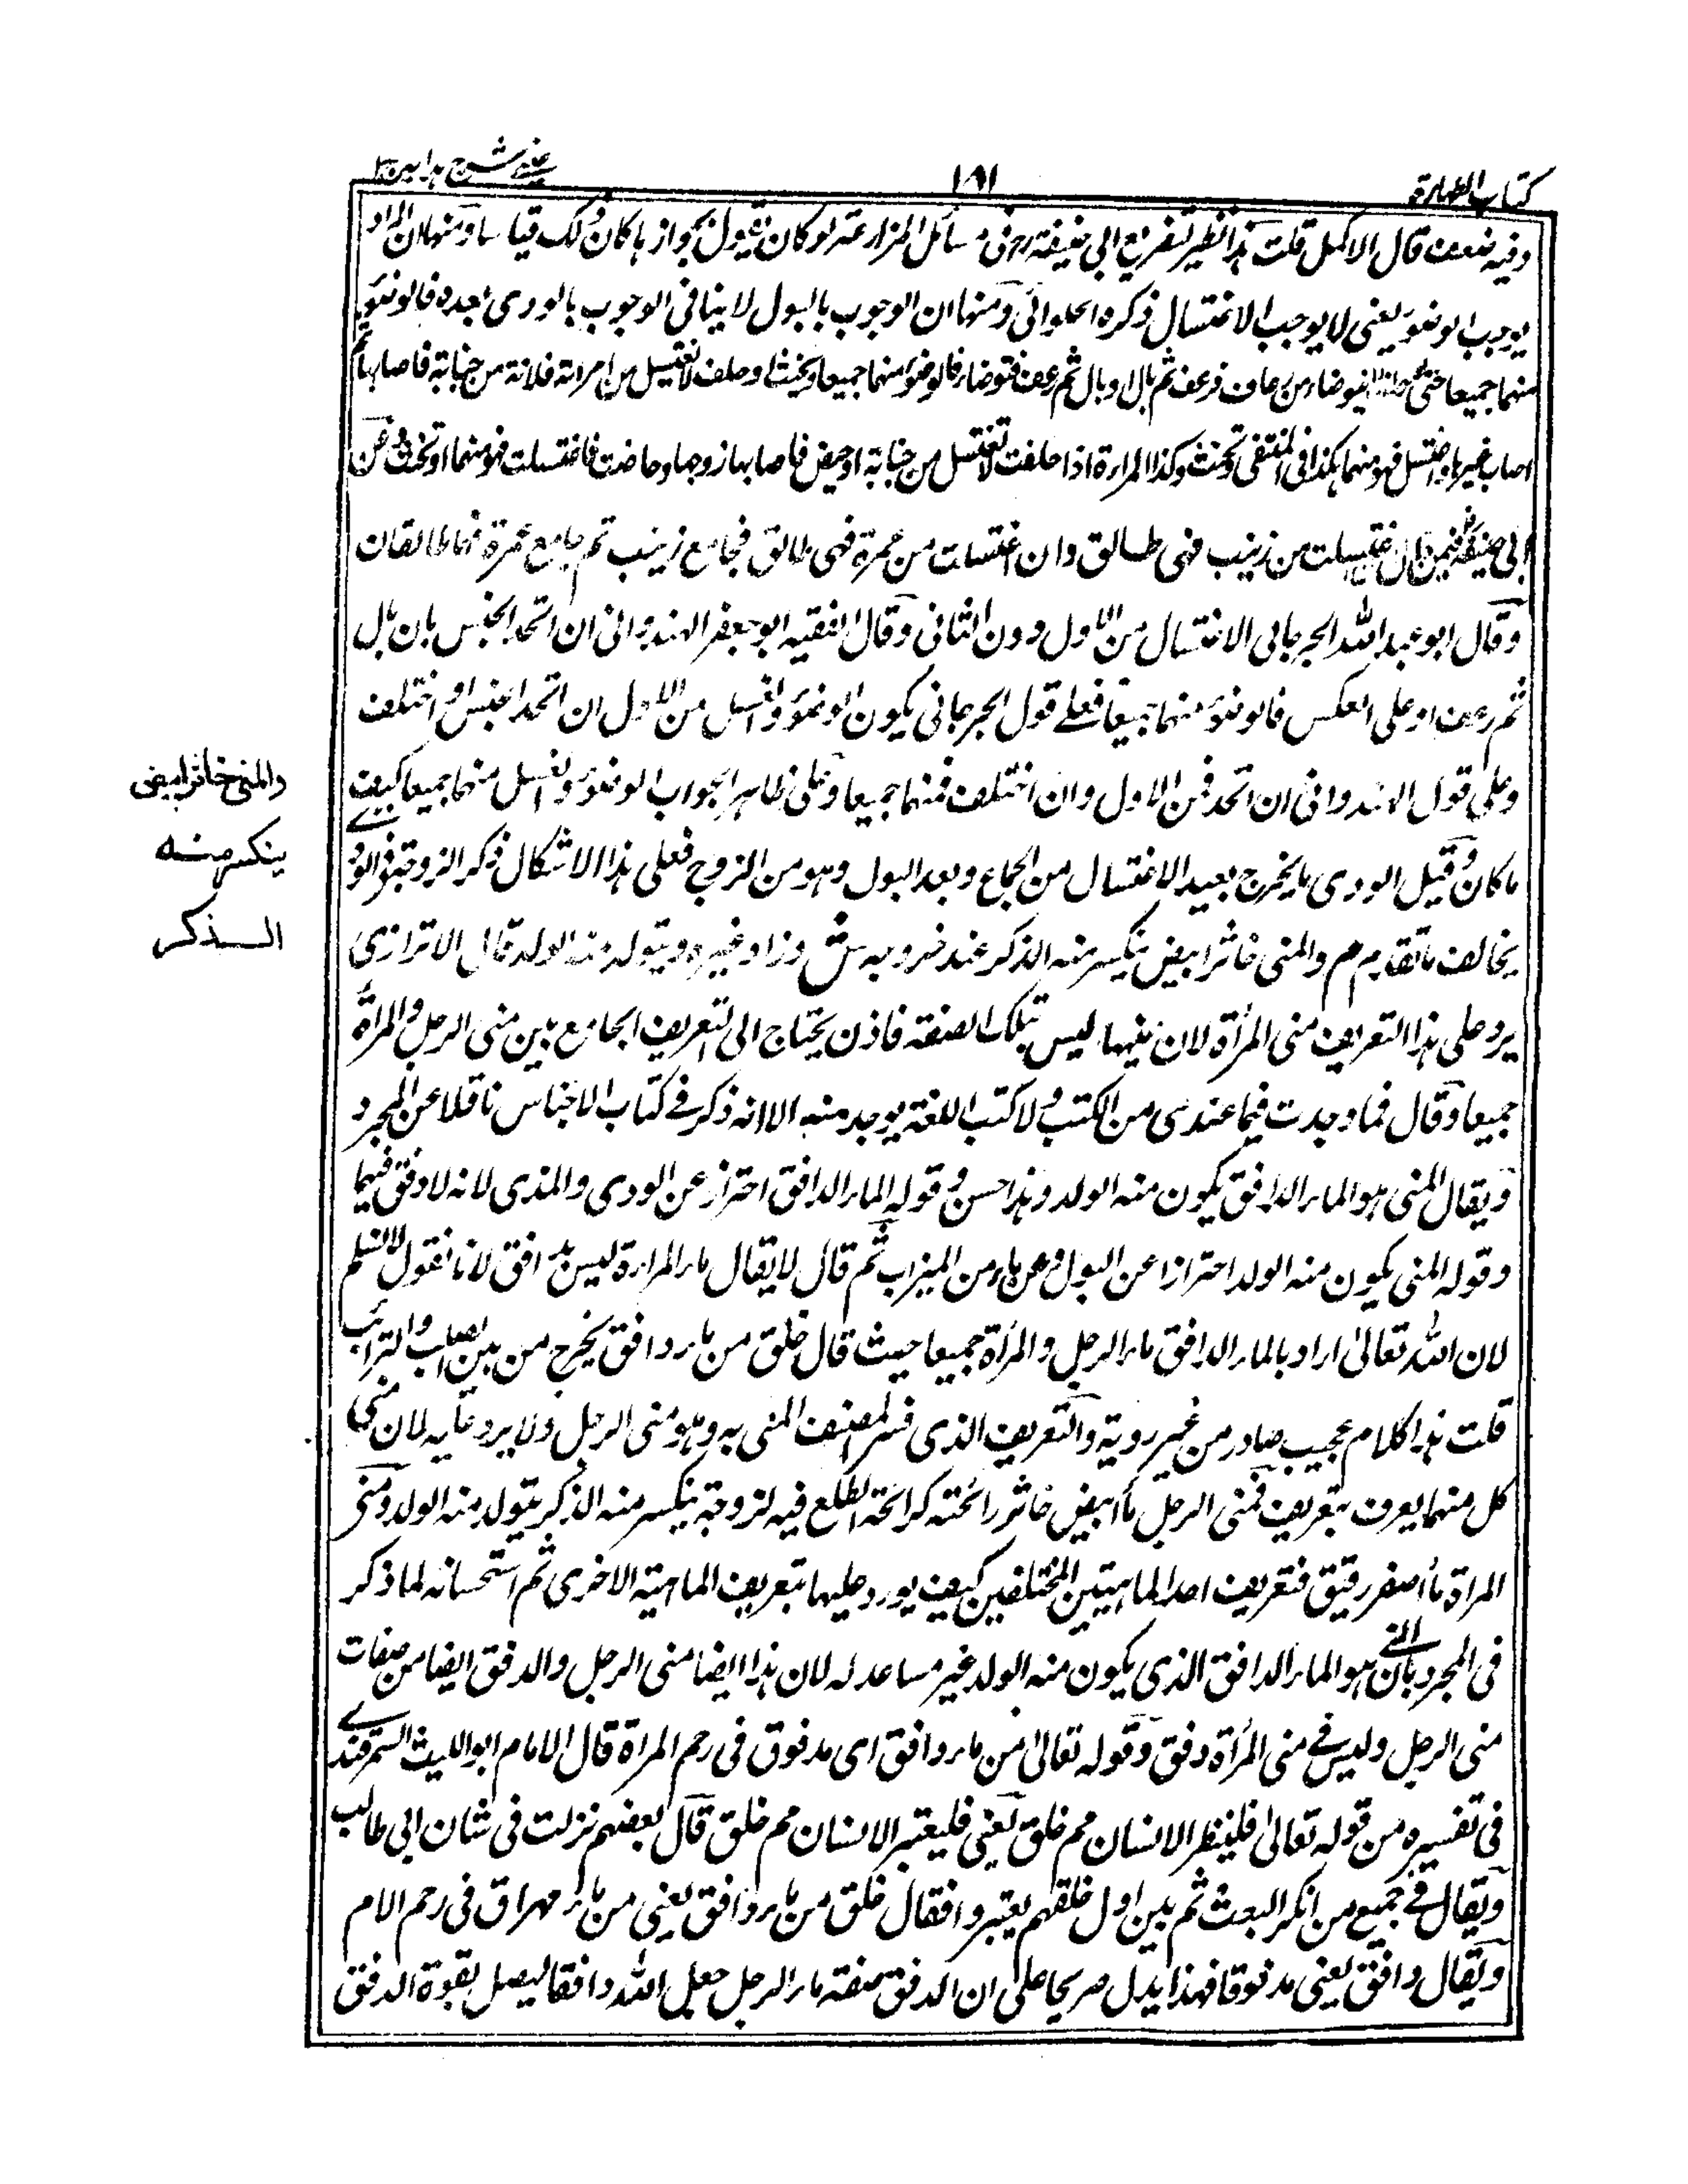 كتاب الطهارة
١٨١
عيني شرح هداية ج١
وفيه ضعف قال الاكمل قلت هذا نظير تفريع ابي حنيفة رح في مسائل المزارعة لو كان يقول بجوازها كان ذلك قياسا ومنها ان المراد
يوجب الوضوء يعني لا يوجب الاغتسال ذكره الحلوائي ومنها ان الوجوب بالبول لا ينافي الوجوب بالودى بعده فالوضوء
منهما جميعا حتى لو حلف لا يتوضاء من رعاف فرعف ثم بال او بال ثم رعف فتوضاء فالوضوء منهما جميعا ويحنث او حلف لا يغتسل من امراته فلانة من جنابة فاصابها ثم
اصاب غيرها واغتسل فهو منهما هكذا في المنتقى ويحنث وكذا المراءة اذا حلفت لا تغتسل من جنابة او حيض فاصابها زوجها وحاضت فاغتسلت فهو منهما وتحنث وعن
ابي حنيفة فيمن قال ان اغتسلت من زينب فهي طالق وان اغتسلت من عمرة فهي طالق فجامع زينب ثم جامع عمرة فهما طالقان
وقال ابو عبد الله الجرجاني الاغتسال من الاول دون الثاني وقال الفقيه ابو جعفر الهندواني ان اتحد الجنس بان بال
ثم رعف او على العكس فالوضوء منهما جميعا فعلى قول الجرجاني يكون الوضوء والغسل من الاول ان اتحد الجنس او اختلف
وعلى قول الهندواني ان اتحد فمن الاول وان اختلف فمنهما جميعا وعلى ظاهر الجواب الوضوء والغسل منهما جميعا كيف
ما كان وقيل الودى ما يخرج بعيد الاغتسال من الجماع وبعد البول وهو من الزوج فعلى هذا الاشكال ذكر الزوجة
يخالف ما تقدم م والمني خاثر ابيض ينكسر منه الذكر عند خروجه ش وزاد غيره ويتولد منه الولد قال الاترازي
يرد على هذا التعريف مني المرأة لان منيها ليس بتلك الصفة فاذن يحتاج الى التعريف الجامع بين مني الرجل والمرأة
جميعا وقال فما وجدت فيما عندي من الكتب ولا كتب اللغة يوجد منه الا انه ذكر في كتاب الاجناس ناقلا عن المجرد
ويقال المني هو الماء الدافق يكون منه الولد وهذا حسن وقوله الماء الدافق احتراز عن الودى والمذى لانه لا دفق فيهما
وقوله المني يكون منه الولد احترازا عن البول وعن ماء من الميزاب ثم قال لا يقال ماء المراءة ليس بدافق لانا نقول لا نسلم
لان الله تعالى اراد بالماء الدافق ماء الرجل والمرأة جميعا حيث قال خلق من ماء دافق يخرج من بين الصلب والترائب
قلت هذا كلام عجيب صادر من غير روية والتعريف الذي فسر المصنف المني به وهو مني الرجل ولا يرد عليه لان مني
كل منهما يعرف بتعريف فمني الرجل ماء ابيض خاثر رائحته كرائحة الطلع فيه لزوجة ينكسر منه الذكر يتولد منه الولد ومني
المراة ماء اصفر رقيق فتعريف احد الماهيتين المختلفين كيف يورد عليها بتعريف الماهية الاخرى ثم استحسانه لما ذكر
في المجرد بان المني هو الماء الدافق الذي يكون منه الولد غير مساعد له لان هذا ايضا مني الرجل والدفق ايضا من صفات
مني الرجل وليس في مني المرأة دفق وقوله تعالى من ماء دافق اى مدفوق في رحم المراة قال الامام ابو الليث السمرقندي
في تفسيره من قوله تعالى فلينظر الانسان مم خلق يعني فليعتبر الانسان مم خلق قال بعضهم نزلت في شان ابي طالب
ويقال في جميع من انكر البعث ثم بين اول خلقهم يعتبروا فقال خلق من ماء دافق يعني من ماء مهراق في رحم الام
ويقال دافق يعني مدفوقا فهذا يدل صريحا على ان الدفق صفة ماء الرجل جعل الله دافقا ليصل بقوة الدفق
والمني خاثر ابيض
ينكسر منه
الذكر